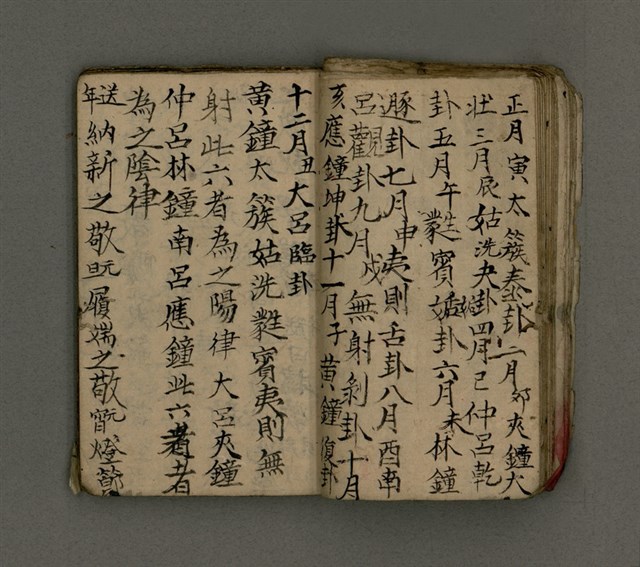 正月寅太簇泰卦二月卯夾鐘大
壯三月辰姑洗夬卦四月己仲呂乾
卦五月午蕤賓姤卦六月未林鐘
遯卦七月申夷則否卦八月酉南
呂觀卦九月戌無射剝卦十月
亥應鐘坤卦十一月子黃鐘復卦
十二月丑大呂臨卦
黃鐘太簇姑洗蕤賓夷則無
射此六者為之陽律大呂夾鐘
仲呂林鐘南呂應鐘此六者者
為之陰律
送年納新之敬旦履端之敬節